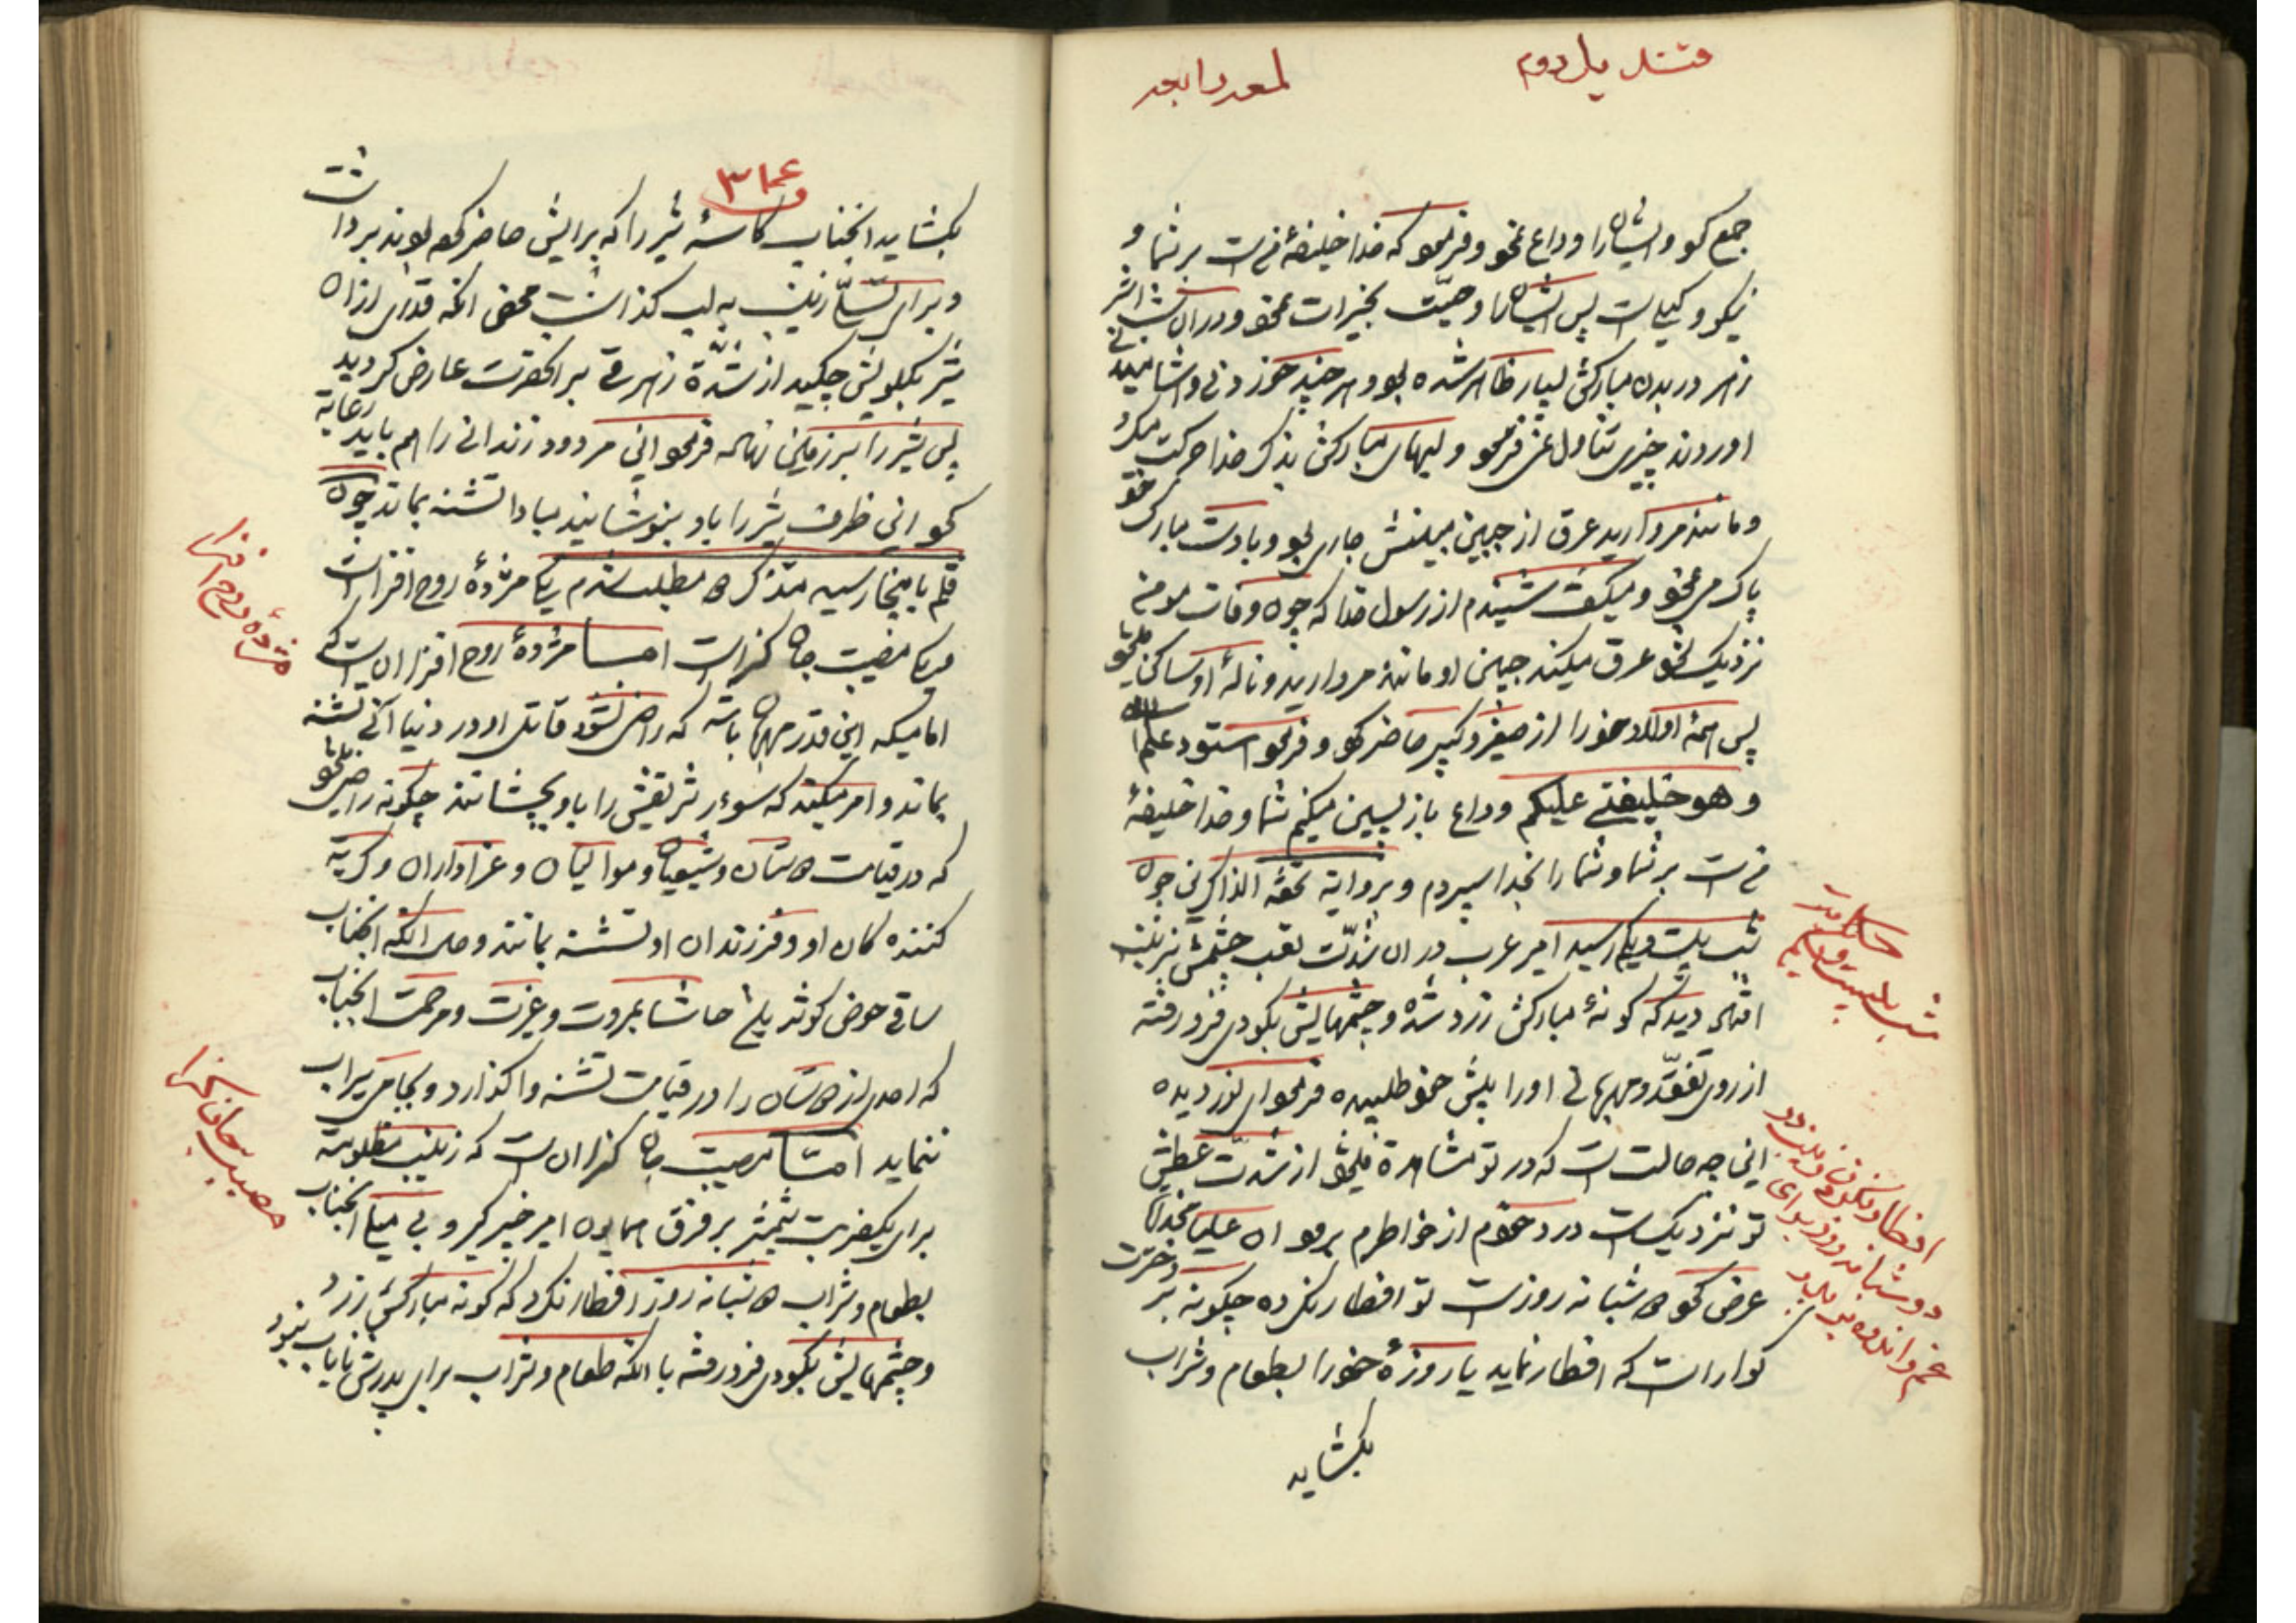 قندیل دوم
لمعه رابعه
جمع کرد و ایشان را وداع نمود و فرمود که خدا خلیفهٔ من است بر شما و
نیکو وکیلی است پس ایشان را وصیّت بخیرات نمود و در آن شب اثر
زهر در بدن مبارکش بسیار ظاهر شده بود و هر چند خوردنی و آشامیدنی
اوردند چیزی تناول نمی فرمود و لبهای مبارکش بذکر خدا حرکت میکرد
و مانند مروارید عرق از جبین مبینش جاری بود و با دست مبارک خود
پاک می نمود و میگفت شنیدم از رسول خدا که چون وفات مومن
نزدیک شود عرق میکند جبین او مانند مروارید و نالهٔ او ساکن میشود
پس همهٔ اولاد خود را از صغیر و کبیر حاضر کرد و فرمود استودعکم الله
و هو خلیفتی علیکم وداع بازپسین میکنم شما و خدا خلیفهٔ
من است بر شما و شما را بخدا سپردم و بروایة تحفة الذاکرین چون
شب بیست و یکم رسید امیر عرب در آن شدّت تعب چشمش بزینب
افتاد دید که گونهٔ مبارکش زرد شده و چشمهایش بگودی فرو رفته
از روی تفقّد و مهربانی او را پیش خود طلبیده فرمود ای نور دیده
این چه حالت است که در تو مشاهده میشود از شدّت عطش
تو نزدیکست درد خودم از خاطرم برود ان علیا جناب
عرض کرد دو شبانه روزست تو افطار نکرده چگونه بر دخترت
گوارا است که افطار نماید یا روزهٔ خود را بطعام و شراب
بگشاید
حکایت شب بیست و یکم
افطار نکردن زینب در
دو شبانه روز برای
غم و اندوه پدر
۳
بگشاید انجناب کاسهٔ شیر را که برایش حاضر کرده بودند برداشت
و برای تسلّی زینب به لب گذاشت محض انکه قدری از ان
شیر بگلویش چکید از شدّة زهر قی بر انحضرت عارض گردید
پس شیر را بر زمین نهاده فرمود این مردود زندانی را هم باید رعایة
کرد این ظرف شیر را باو بنوشانید مبادا تشنه بماند چون
قلم باینجا رسید متذکر دو مطلب شدم یکی مژدهٔ روح افزاست
و یکی مصیبت جان گزاست امّا مژدهٔ روح افزا ان است که
امامیکه این قدر مهربان باشد که راضی نشود قاتل او در دنیا آنی تشنه
بماند و امر میکند که سوءر شریفش را باو بچشانند چگونه راضی میشود
که در قیامت دوستان و شیعیان و موالیان و عزاداران و گریه
کننده کان او و فرزندان او تشنه بمانند و حال انکه انجناب
ساقی حوض کوثر بلی حاشا بمروت و غیرت و مرحمت انجناب
که احدی از دوستان را در قیامت تشنه واگذارد و بجامی سیراب
ننماید امّا مصیبت جان گزا ان است که زینب مظلومه
برای یکضربت شمشیر بر فرق همایون امیر خیبر گیر و بی میلی انجناب
بطعام و شراب دو شبانه روز افطار نکرد که گونه مبارکش زرد
و چشمهایش بگودی فرو رفته با انکه طعام و شراب برای پدرش نایاب نبود
مژدهٔ روح افزا
مصیبت جان گزا